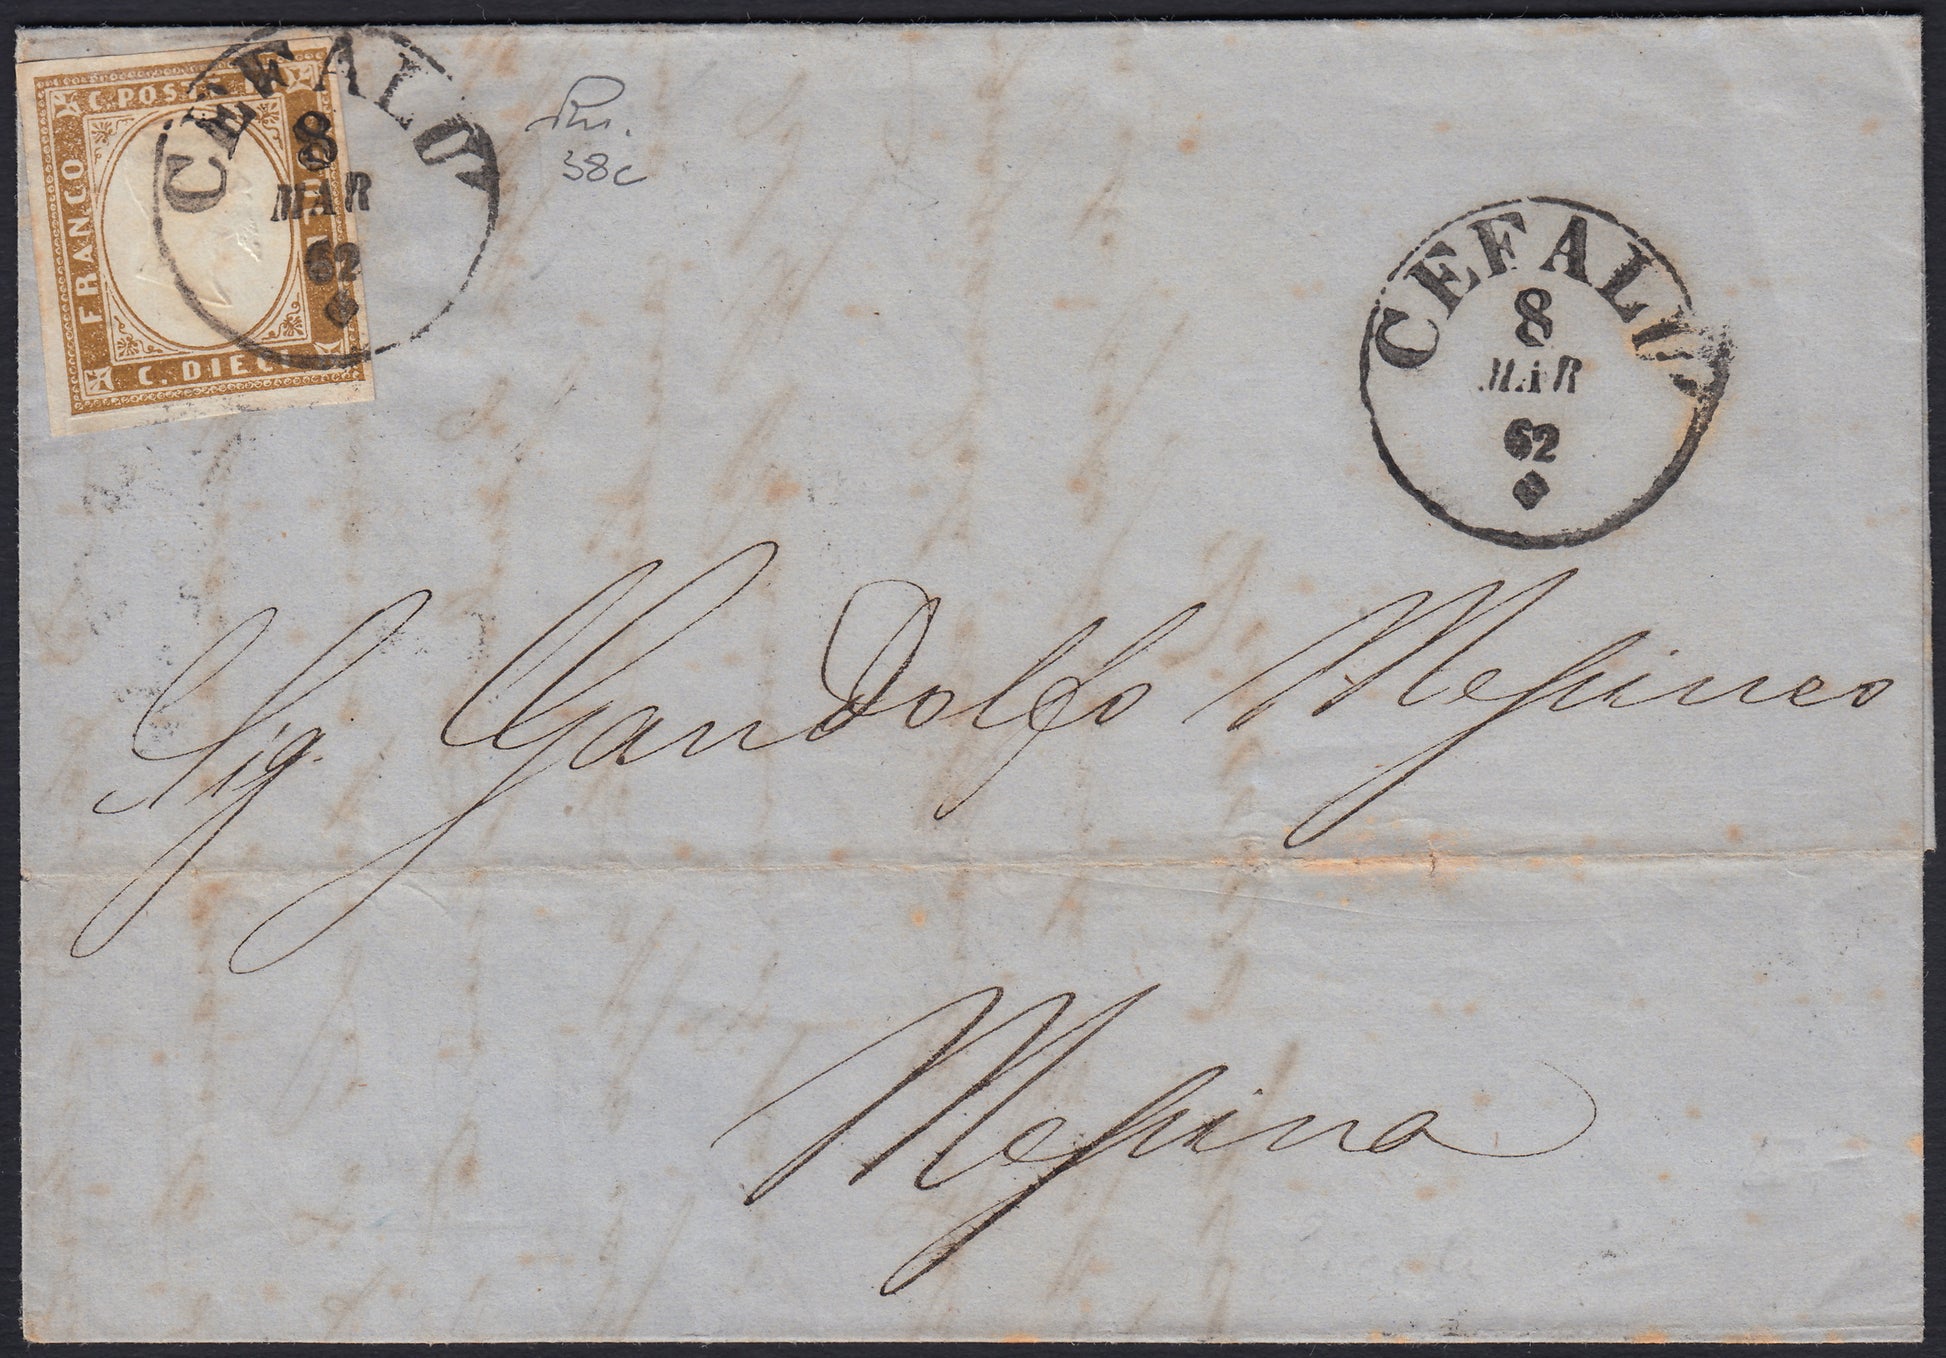 C. POSTE
FRANCO
C. DIECI
CEFALU
8
MAR
62
38c
CEFALU
8
MAR
62
Sig. Gandolfo Messineo
Messina